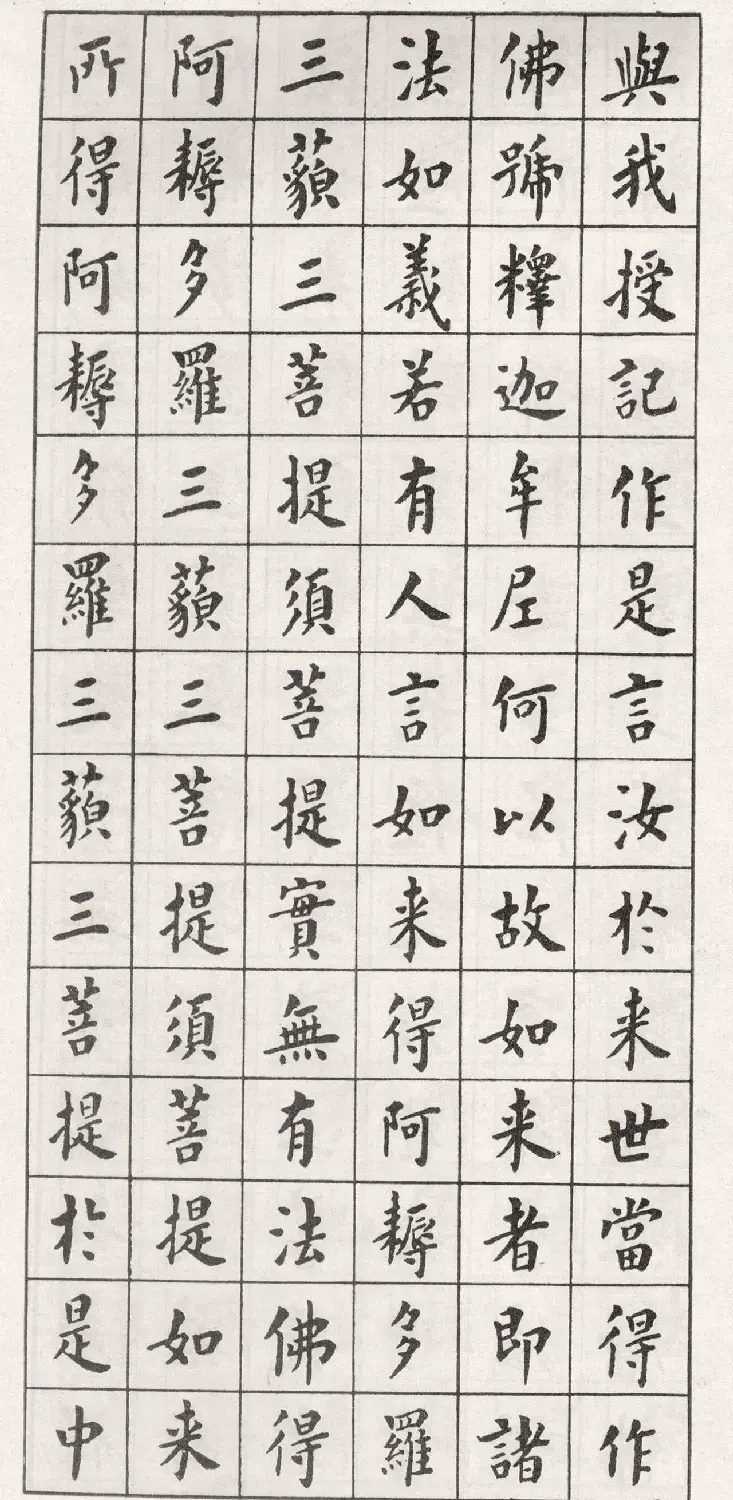 與我授記作是言汝於来世當得作
佛號釋迦牟尼何以故如来者即諸
法如義若有人言如来得阿耨多羅
三藐三菩提須菩提實無有法佛得
阿耨多羅三藐三菩提須菩提如来
所得阿耨多羅三藐三菩提於是中